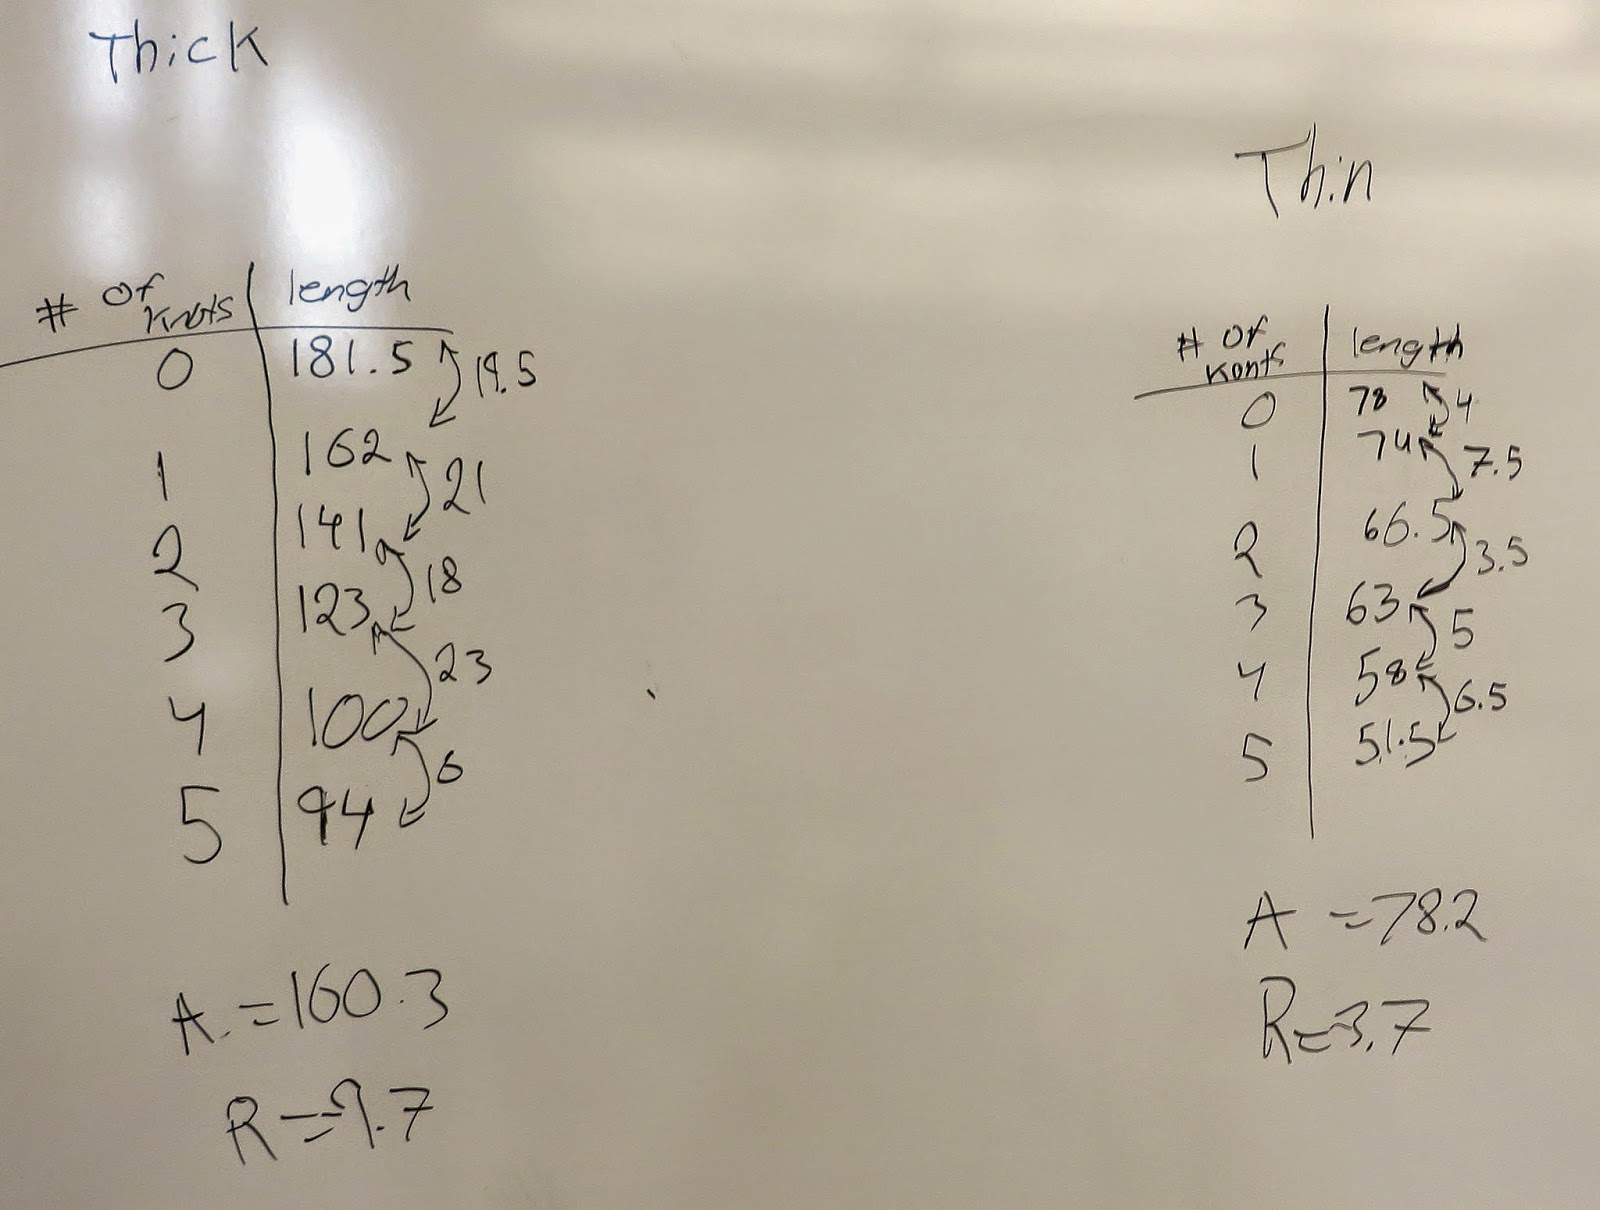 Thick
# of Knots | length
0 | 181.5
19.5
1 | 162
21
2 | 141
18
3 | 123
23
4 | 100
6
5 | 94
A. = 160.3
R = 9.7
Thin
# of Konts | length
0 | 78
4
1 | 74
7.5
2 | 66.5
3.5
3 | 63
5
4 | 58
6.5
5 | 51.5
A = 78.2
R = 3.7